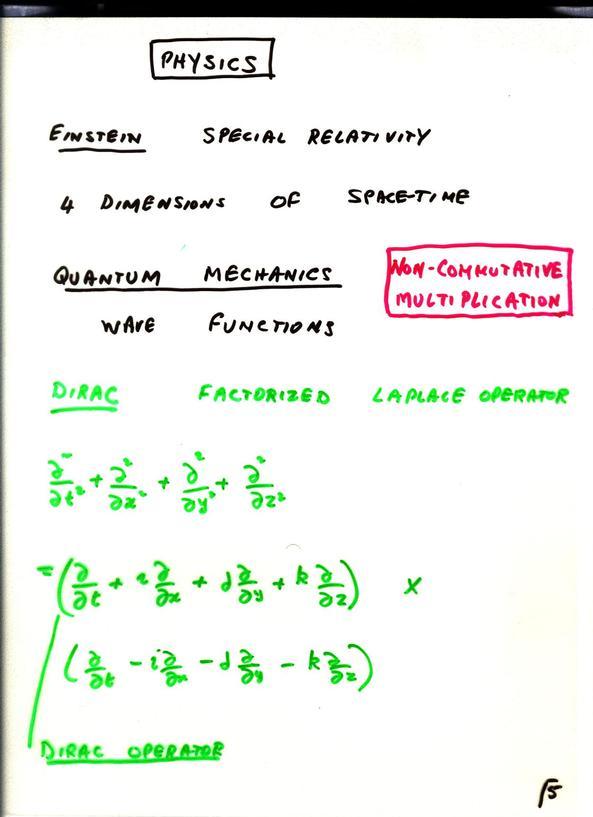 PHYSICS
EINSTEIN SPECIAL RELATIVITY
4 DIMENSIONS OF SPACE-TIME
QUANTUM MECHANICS
NON-COMMUTATIVE
MULTIPLICATION
WAVE FUNCTIONS
DIRAC FACTORIZED LAPLACE OPERATOR
∂²/∂t² + ∂²/∂x² + ∂²/∂y² + ∂²/∂z²
= (∂/∂t + i ∂/∂x + j ∂/∂y + k ∂/∂z) ×
(∂/∂t - i ∂/∂x - j ∂/∂y - k ∂/∂z)
DIRAC OPERATOR